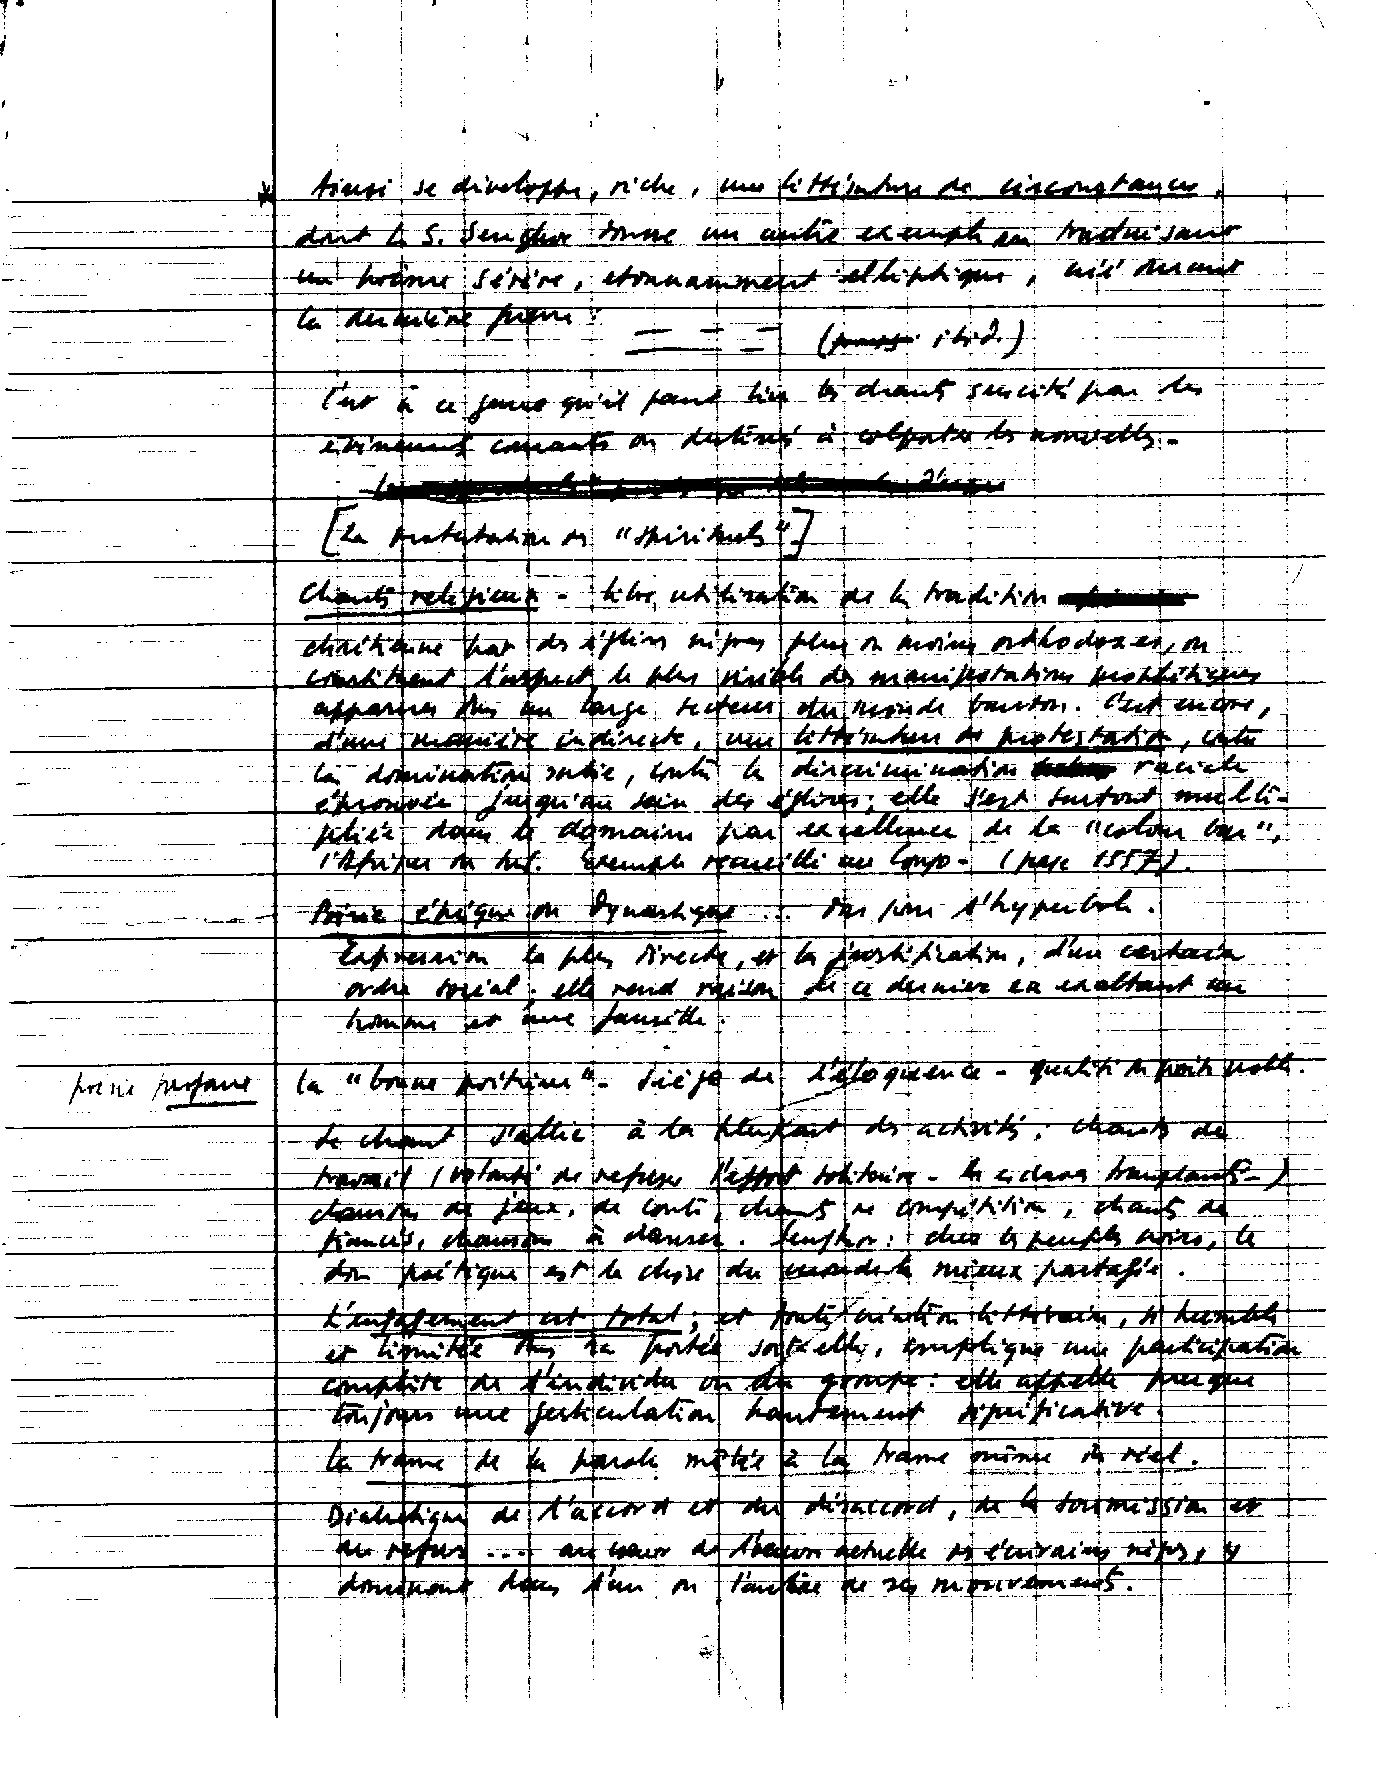 Ainsi se développe, riche, une littérature de circonstances,
dont L. S. Senghor donne un autre exemple en traduisant
un poème sérère, étonnamment elliptique, créé durant
la dernière guerre :
( ibid.)
C'est à ce genre qu'il faut lier les chants suscités par les
événements courants ou destinés à colporter les nouvelles -
[La protestation des "spirituals"]
Chants religieux - libre utilisation de la tradition
chrétienne par des églises nègres plus ou moins orthodoxes, ou
constituent l'aspect le plus visible des manifestations prophétiques
apparues dans un large secteur du monde bantou. C'est encore,
d'une manière indirecte, une littérature de protestation, contre
la domination subie, contre la discrimination raciale
éprouvée jusqu'au sein des églises; elle s'est surtout multi-
pliée dans le domaine par excellence de la "colour bar",
l'Afrique du Sud. Exemple recueilli au Congo - (page 1557).
Poésie épique ou dynastique ... son goût de l'hyperbole.
Expression la plus directe, et la justification, d'un certain
ordre social; elle rend raison de ce dernier en exaltant un
homme et une famille.
poésie profane
la "bonne poitrine" - siège de l'éloquence - qualité
Le chant s'allie à la plupart des activités; chants de
travail (volonté de refuser l'effort solitaire - les esclaves transplantés -)
chansons de jeux, de conte, chants de compétition, chants de
fiancés, chansons à danser. Senghor: chez les peuples noirs, le
don poétique est la chose du monde la mieux partagée.
L'engagement est total; et toute création littéraire, si humble
et limitée dans sa portée soit-elle, implique une participation
complète de l'individu ou du groupe: elle appelle presque
toujours une gesticulation hautement significative.
La trame de la parole mêlée à la trame même du réel.
Dialectique de l'accord et du désaccord, de la soumission et
du refus .... au cœur de l'œuvre actuelle des écrivains nègres, y
dominant dans l'un ou l'autre de ses mouvements.